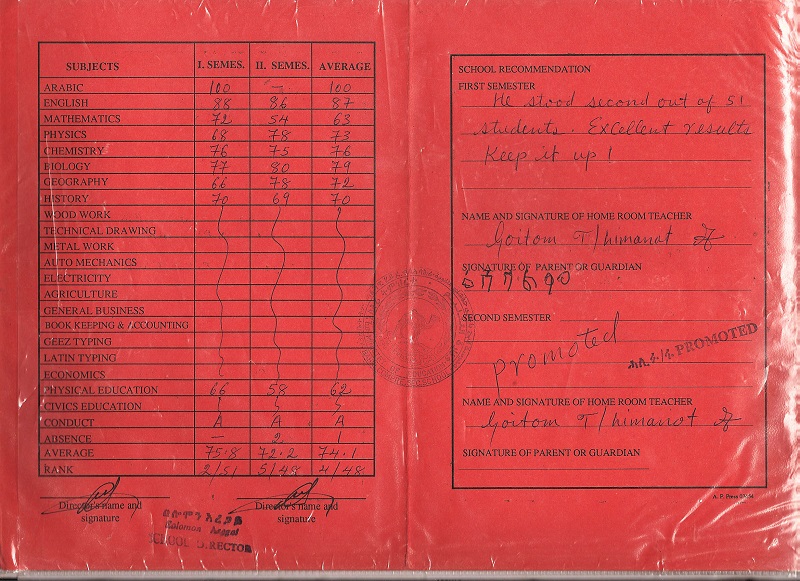 SUBJECTS I. SEMES. II. SEMES. AVERAGE
ARABIC 100 — 100
ENGLISH 88 86 87
MATHEMATICS 72 54 63
PHYSICS 68 78 73
CHEMISTRY 76 75 76
BIOLOGY 77 80 79
GEOGRAPHY 66 78 72
HISTORY 70 69 70
WOOD WORK
TECHNICAL DRAWING
METAL WORK
AUTO MECHANICS
ELECTRICITY
AGRICULTURE
GENERAL BUSINESS
BOOK KEEPING & ACCOUNTING
GEEZ TYPING
LATIN TYPING
ECONOMICS
PHYSICAL EDUCATION 66 58 62
CIVICS EDUCATION
CONDUCT A A A
ABSENCE — 2 1
AVERAGE 75.8 72.2 74.1
RANK 2/51 5/48 4/48
Director's name and signature
Director's name and signature
ሰሎሞን አረጋይ
Solomon Aregai
SCHOOL DIRECTOR
SCHOOL RECOMMENDATION
FIRST SEMESTER
He stood second out of 51
students. Excellent results
Keep it up!
NAME AND SIGNATURE OF HOME ROOM TEACHER
Goitom T/himanot
SIGNATURE OF PARENT OR GUARDIAN
SECOND SEMESTER
promoted
PROMOTED
NAME AND SIGNATURE OF HOME ROOM TEACHER
Goitom T/himanot
SIGNATURE OF PARENT OR GUARDIAN